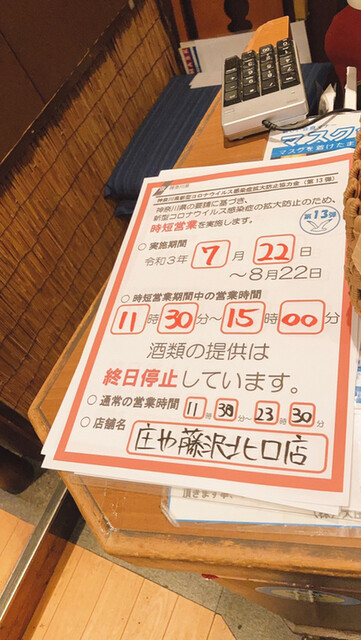 神奈川県
神奈川県新型コロナウイルス感染症拡大防止協力金(第13弾)
神奈川県の要請に基づき、
新型コロナウイルス感染症の拡大防止のため、
時短営業を実施します。
第13弾
○ 実施期間
令和3年 7月 22日
～8月22日
○ 時短営業期間中の営業時間
11時30分～15時00分
酒類の提供は
終日停止しています。
○ 通常の営業時間 11時30分～23時30分
○ 店舗名 庄や藤沢北口店
マスク
マスクを着けたま
頂きます事